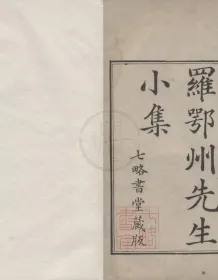 羅鄂州先生
小集
七略書堂藏版